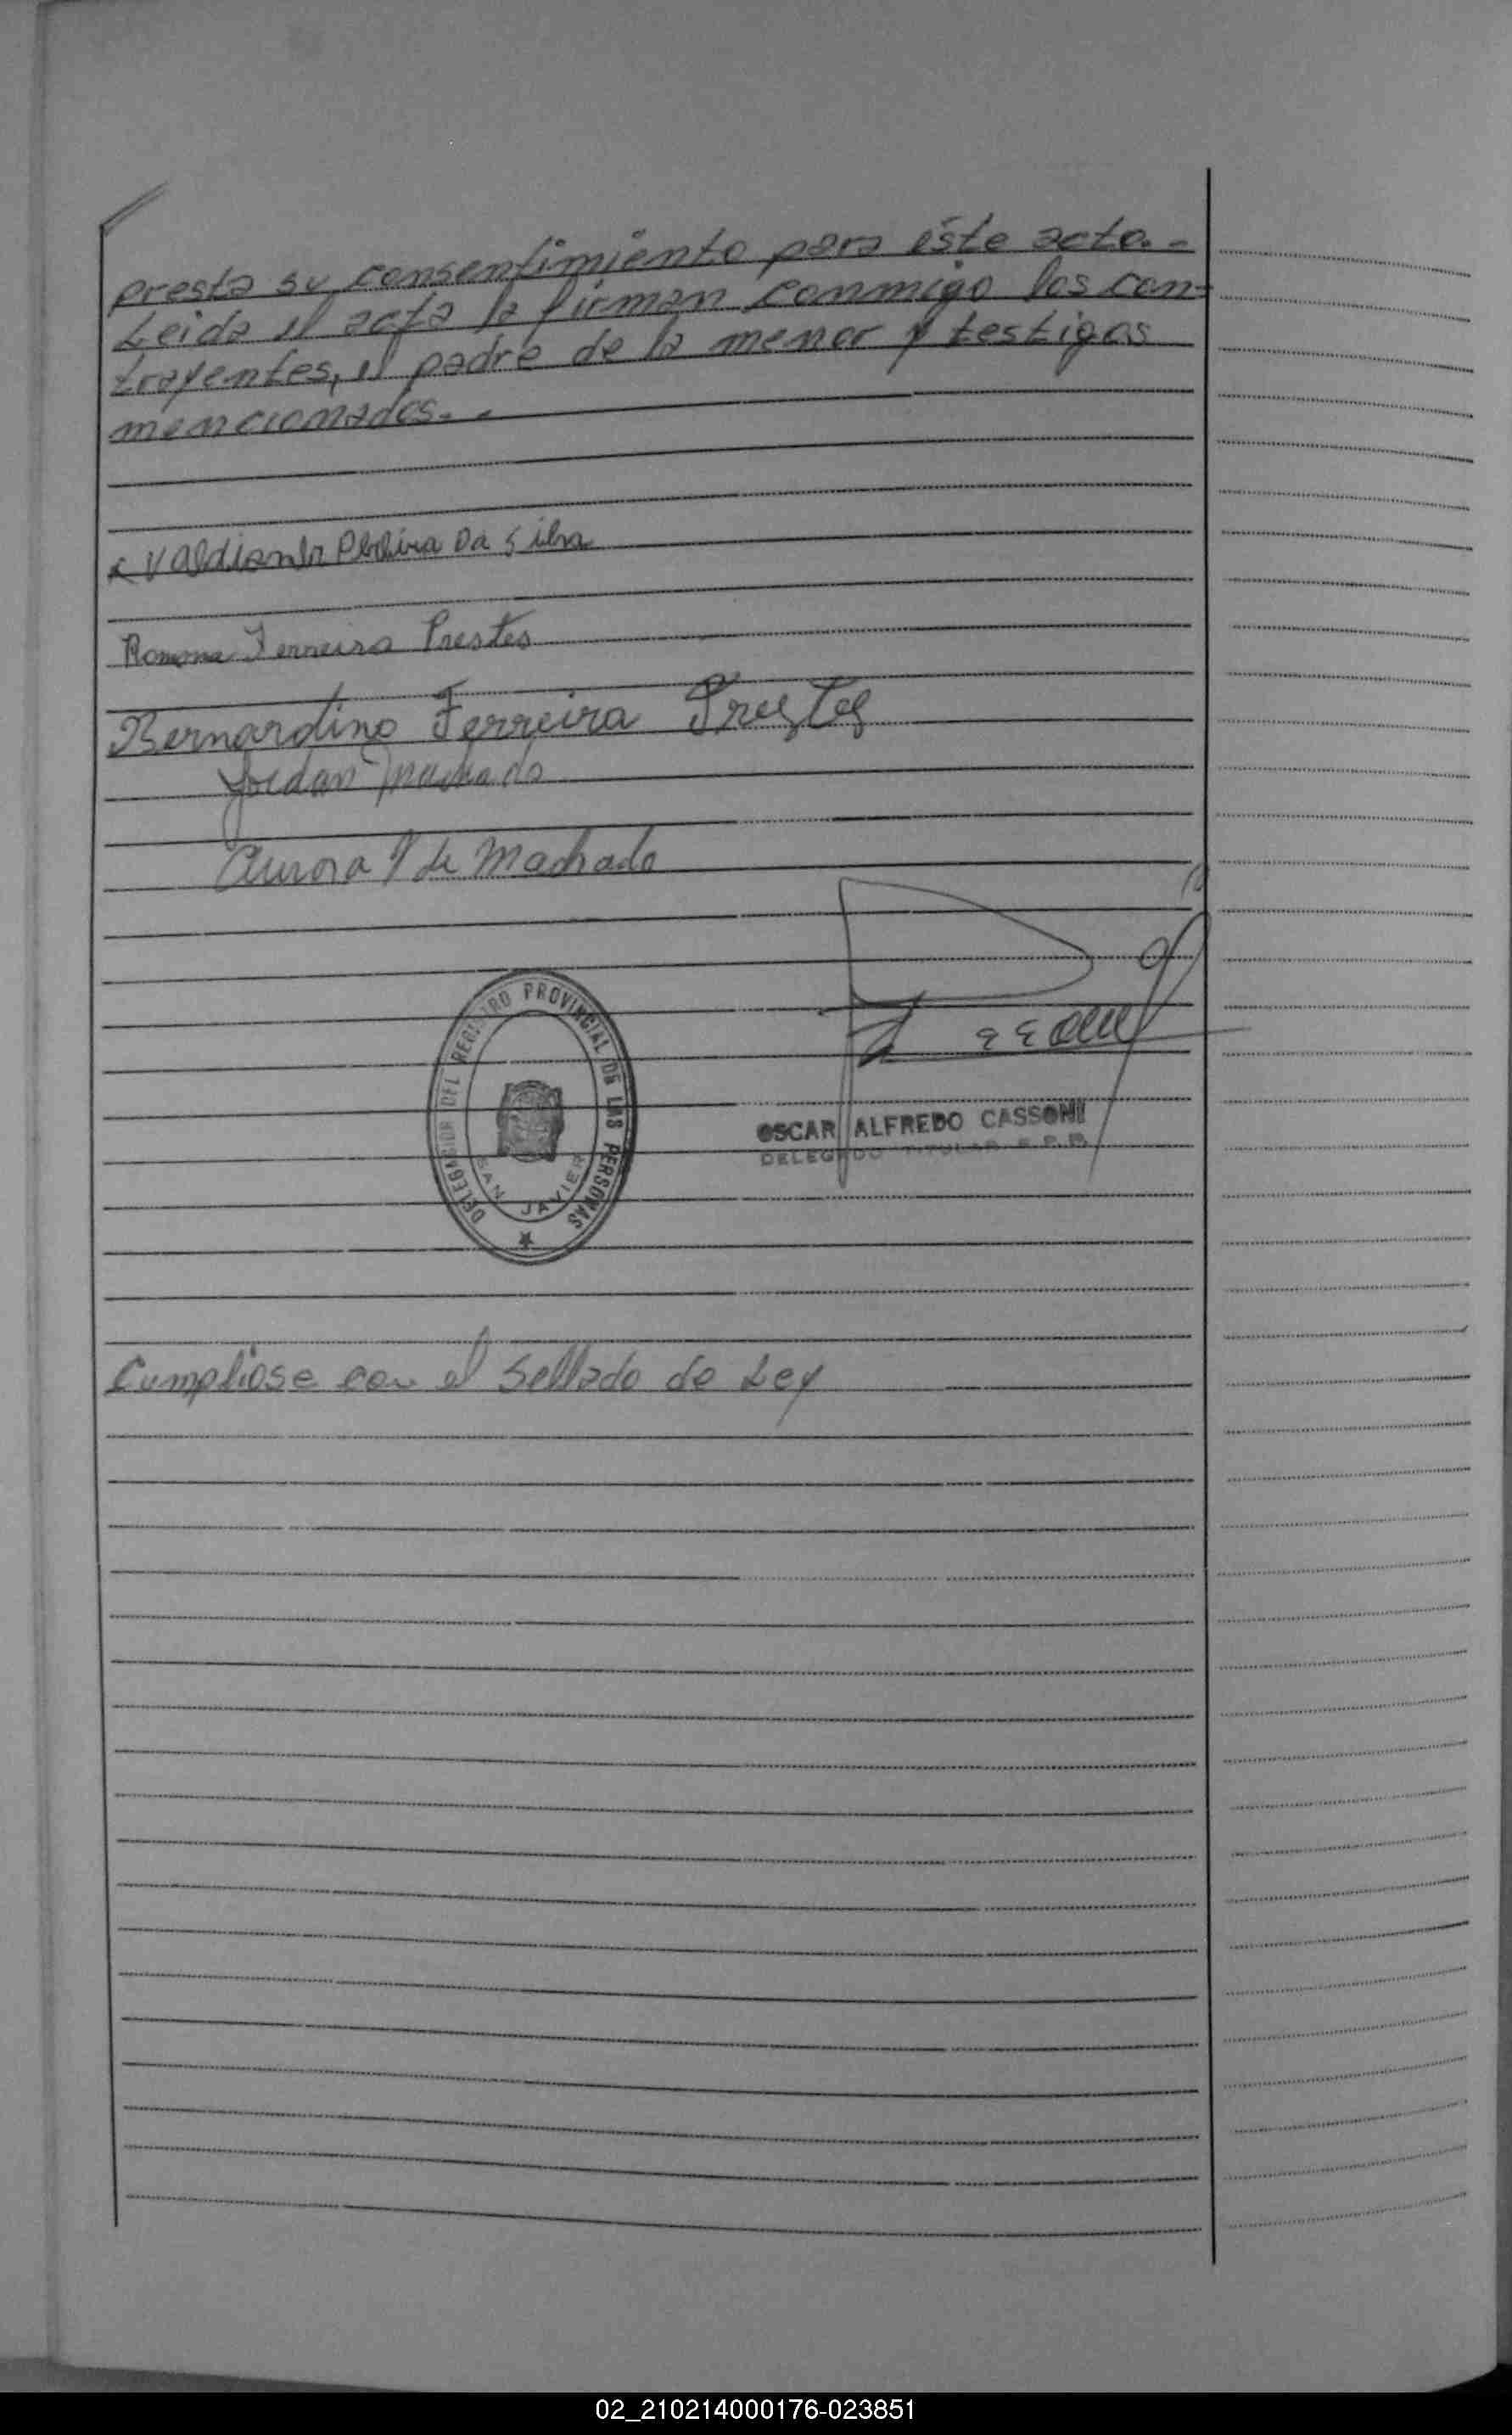 presta su consentimiento para éste acto.-
Leida el acta la firman conmigo los con-
trayentes, el padre de la menor y testigos
mencionados.-
Da Silva
Ramona Ferreira Prestes
Bernardino Ferreira Prestes
Jordan Machado
Aurora P de Machado
DELEGACION DEL REGISTRO PROVINCIAL DE LAS PERSONAS
SAN JAVIER
OSCAR ALFREDO CASSONI
DELEGADO TITULAR R.P.P.
Cumpliose con el Sellado de Ley
02_210214000176-023851